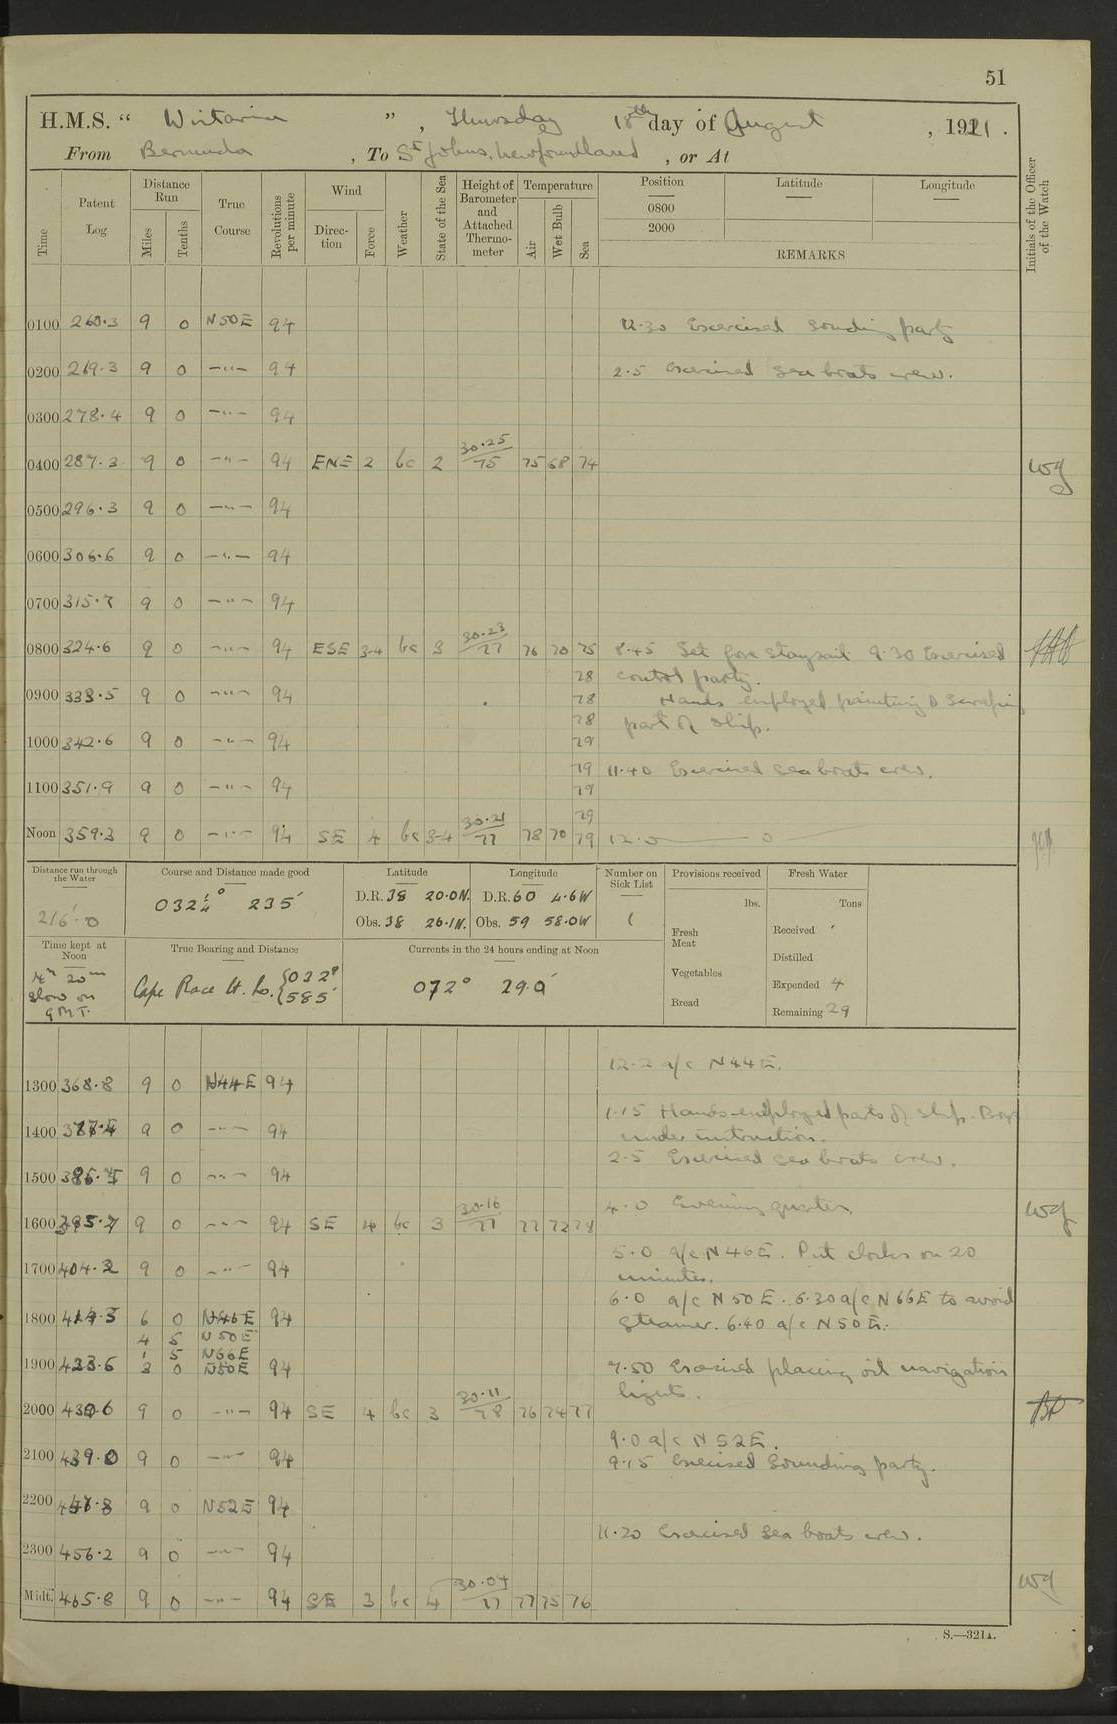 51
H.M.S. " Wistaria " , Thursday 18th day of August , 1921 .
From Bermuda , To St Johns, Newfoundland , or At
Time Patent Log Distance Run Miles Tenths True Course Revolutions per minute Wind Direc-tion Force Weather State of the Sea Height of Barometer and Attached Thermo-meter Temperature Air Wet Bulb Sea Position 0800 2000 Latitude Longitude
REMARKS
Initials of the Officer of the Watch
0100 260.3 9 0 N50E 94 12.30 Exercised sounding party
0200 269.3 9 0 —"— 94 2.5 Exercised sea boats crew.
0300 278.4 9 0 —"— 94
0400 287.3 9 0 —"— 94 ENE 2 bc 2 30.25/75 75 68 74
0500 296.3 9 0 —"— 94
0600 306.6 9 0 —"— 94
0700 315.7 9 0 —"— 94
0800 324.6 9 0 —"— 94 ESE 3-4 bc 3 30.23/77 76 70 75 8.45 Set fore staysail 9.30 Exercised
78 control party.
0900 333.5 9 0 —"— 94 78 Hands employed painting & scraping
78 part of ship.
1000 342.6 9 0 —"— 94 79
79 11.40 Exercised sea boats crew.
1100 351.9 9 0 —"— 94 79
79
Noon 359.3 9 0 —"— 94 SE 4 bc 3-4 30.21/77 78 70 79 12.0 — 0
Distance run through the Water Course and Distance made good Latitude Longitude Number on Sick List Provisions received Fresh Water
216.0 032¼° 235' D.R. 38 20.0N. D.R. 60 4.6W lbs. Tons
Obs. 38 26.1N. Obs. 59 58.0W 1 Fresh Meat Received
Time kept at Noon True Bearing and Distance Currents in the 24 hours ending at Noon Distilled
4h 20m slow on G.M.T. Cape Race Lt. Ho. {032° 585' 072° 29.0' Vegetables Expended 4
Bread Remaining 29
12.2 a/c N44E.
1300 368.8 9 0 N44E 94
1.15 Hands employed parts of ship. Boys
1400 377.4 9 0 —"— 94 under instruction.
2.5 Exercised sea boats crew.
1500 386.5 9 0 —"— 94
4.0 Evening quarters
1600 395.7 9 0 —"— 94 SE 4 bc 3 30.16/77 77 72 78
5.0 a/c N46E. Put clocks on 20
1700 404.2 9 0 —"— 94 minutes.
6.0 a/c N50E. 6.30 a/c N66E to avoid
1800 414.5 6 0 N46E 94 steamer. 6.40 a/c N50E.
4 5 N50E
1 5 N66E
1900 423.6 3 0 N50E 94 7.50 Exercised placing oil navigation
lights.
2000 430.6 9 0 —"— 94 SE 4 bc 3 30.11/78 76 74 77
9.0 a/c N52E.
2100 439.0 9 0 —"— 94 9.15 Exercised Sounding party.
2200 447.8 9 0 N52E 94
11.20 Exercised Sea boats crew.
2300 456.2 9 0 —"— 94
Midt. 465.8 9 0 —"— 94 SE 3 bc 4 30.07/77 77 75 76
S.—321A.